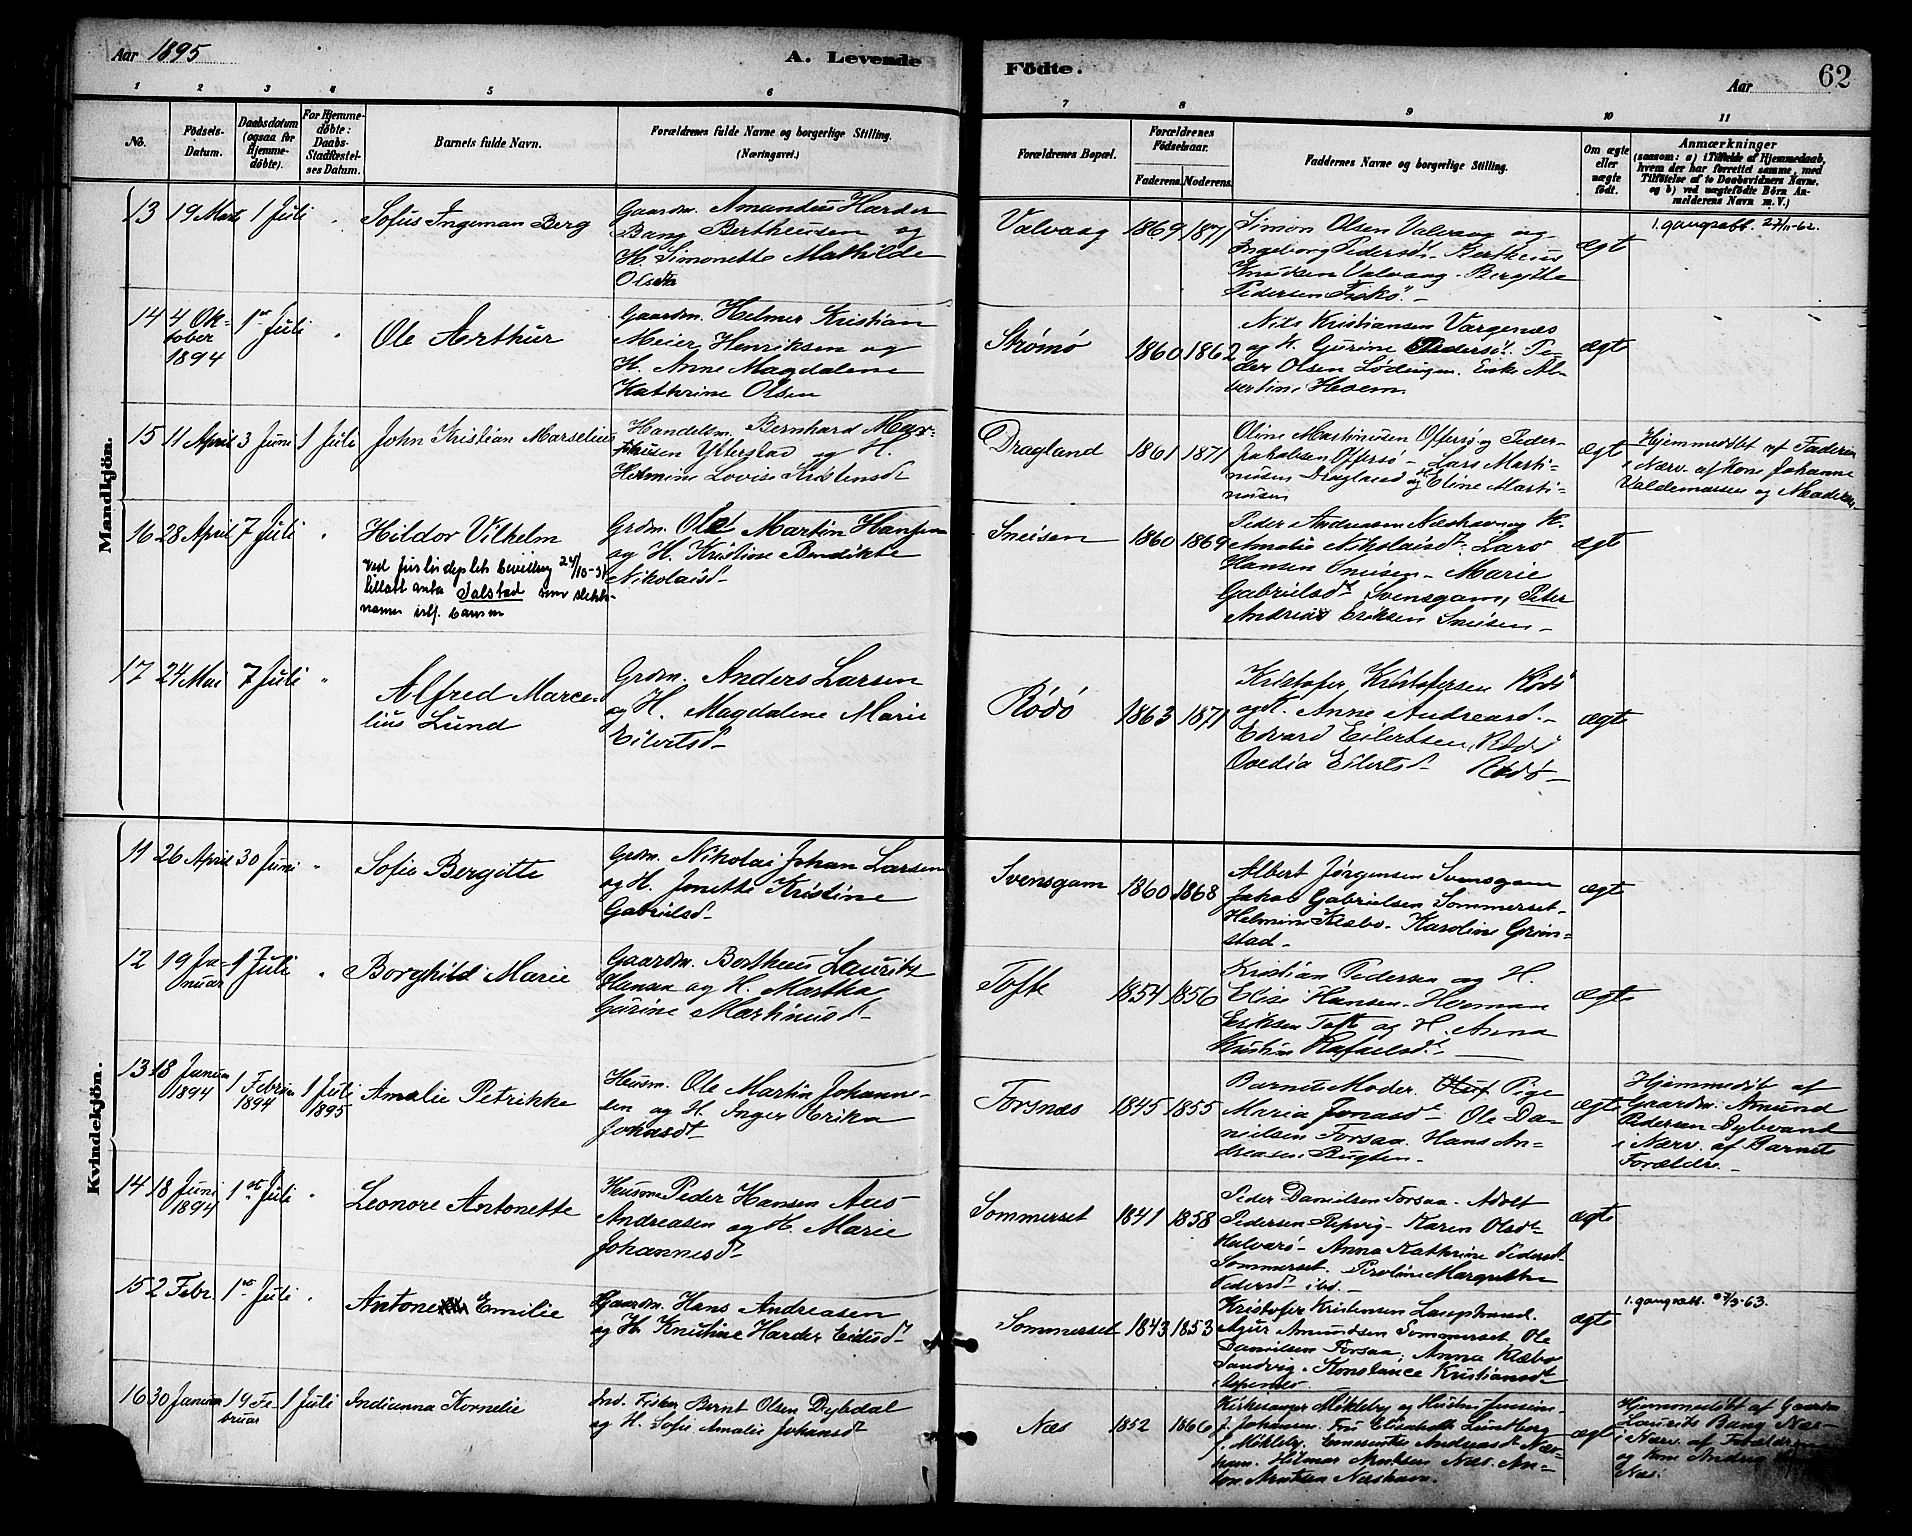 Aar 1895
A. Levende
Födte.
Aar
62
1 2 3 4 5 6 7 8 9 10 11
No.
Födsels-
Datum.
Daabsdatum
(ogsaa for
Hjemme-
döbte).
For Hjemme-
döbte:
Daabs-
Stadfestel-
ses Datum.
Barnets fulde Navn.
Forældrenes fulde Navne og borgerlige Stilling.
(Næringsvei.)
Forældrenes Bopæl.
Forældrenes
Födselsaar.
Faderens. Moderens.
Faddernes Navne og borgerlige Stilling.
Om ægte
eller
uægte
födt.
Anmærkninger
(saasom: a) i Tilfælde af Hjemmedaab,
hvem der har forrettet samme, med
Tilföielse af to Daabsvidners Navne,
og b) ved uægtefödte Börn An-
melderens Navn m. V.)
Mandkjön.
13 19 Marts 1 Juli Sofus Ingeman Berg
Gaardm. Amandus Harder
Bang Bertheusen og
H. Simonette Mathilde
Olsdtr
Valvaag 1869 1871
Simon Olsen Valvaag og
Ingeborg Pedersdt. Bertheus
Knudsen Valvaag. Bergitte
Pedersen
ægte
1. gangsatt.
14 4 Ok-
tober
1894
1st Juli Ole Aerthur
Gaardm. Helmer Kristian
Meier Henriksen og
H. Anne Magdalene
Kathrine Olsen
Strømø 1860 1862
Nils Kristiansen Vargenæs
og H. Gurine Pedersdt. Pe-
der Olsen Lødingen. Enke Al-
bertine
ægte
15 11 April 3 Juni 1 Juli John Kristian Marselius
Handelm. Bernhard Mar-
Ytterstad og H.
Hermine Lovise
Dragland 1861 1871
Oline Martinusen Offersø og Peder
Jakobsen Offersø - Lars Marti-
nusen Dragland og Eline Marti-
nusen
ægte
Hjemmedøbt af Faderen
i Nærv. af Kone Johanne
Valdemarsen og Moderen
16 28 April 7 Juli Hildor Vilhelm
ved
tillatt anta Jalstad som slekts-
navn
Grdm. Ole Martin Hansen
og H. Kristine Bendikte
Nikolaisd.
Sneisen 1860 1869
Peder Andreasen Næshavn og K.
Amalie Nikolaisdt. Lars
Hansen Sneisen - Marie
Gabrielsdt Svensgam, Peter
Andreas Eriksen Sneisen -
ægte
17 24 Mai 7 Juli Alfred Marce-
lius Lund
Grdm. Anders Larsen
og H. Magdalene Marie
Eilertsd.
Rødø 1863 1871
Kristofer Kristofersen Rødø
og H. Anne Andreasd. -
Edvard Eilertsen, Rødø
Ovedia Eilertsd. Rødø -
ægte
Kvindekjön.
11 26 April 30 Juni Sofie Bergitte
Grdm. Nikolai Johan Larsen
og H. Jonette Kristine
Gabrielsd.
Svensgam 1860 1868
Albert Jørgensen Svensgam
Jakob Gabrielsen Sommerset.
Helmin Klæbo. Karoline Grøn-
stad -
ægte
12 19 Ja-
nuar
1 Juli Borghild Marie
Gaardm. Bertheus Lauritz
Hansen og H. Martha
Gurine Martinusd.
Tofte 1854 1856
Kristian Pedersen og H.
Elise Hansen. Herman
Eriksen Toft og H. Anna
Kristine Rafaelsdt. -
ægte
13 18 Januar
1894
1 Februar
1894
1 Juli
1895
Amalie Petrikke
Husm. Ole Martin Johanne-
sen og H. Inger Erika
Jonasdt.
Forsnæs 1845 1855
Barnets Moder. Pige
Maria Jonasdt. Ole Da-
nielsen Forsaa. Hans An-
dreasen Bugten.
ægte
Hjemmedøbt af
Gaardm. Amund
Pedersen Dybvand
i Nærv. af Barnets
Forældre. -
14 18 Juni
1894
1st Juli Leonore Antonette
Husm. Peder Hansen Aus
Andreasen og H. Marie
Johannesd.
Sommerset 1841 1858
Peder Danielsen Forsaa. Adolf
Pedersen Repvig - Karen Olsdt
Halvarø - Anna Kathrine Pedersdt
Sommerset. Peroline Margrethe
Pedersdt. ibd.
ægte
15 2 Febr. 1st Juli Antone Emilie
Gaardm. Hans Andreasen
og H. Knustine Harder
Sommerset 1843 1853
Kristofer Kristensen
Amundsen Sommerset. Ole
Danielsen Forsaa, Anna Klæbo
Sandvig. Konstance Kristiansdt
ægte
1. gangsatt.
16 30 Januar 19 Fe-
bruar
1 Juli Indianna Kornelie
Ind. Fisker Bernt Olsen Dybdal
og H. Sofie Amalie Johansdt
Næs 1852 1866
Kirkesanger Møkleby og Hustru
J. Johansen. Fru Elisabeth Lundberg
J. Møkleby.
Hilmar Næs. An-
ton Næshavn.
ægte
Hjemmedøbt af Gaardm
Laurits Bang Næs
i Nærv. af Forældre
og Kone
Næs.